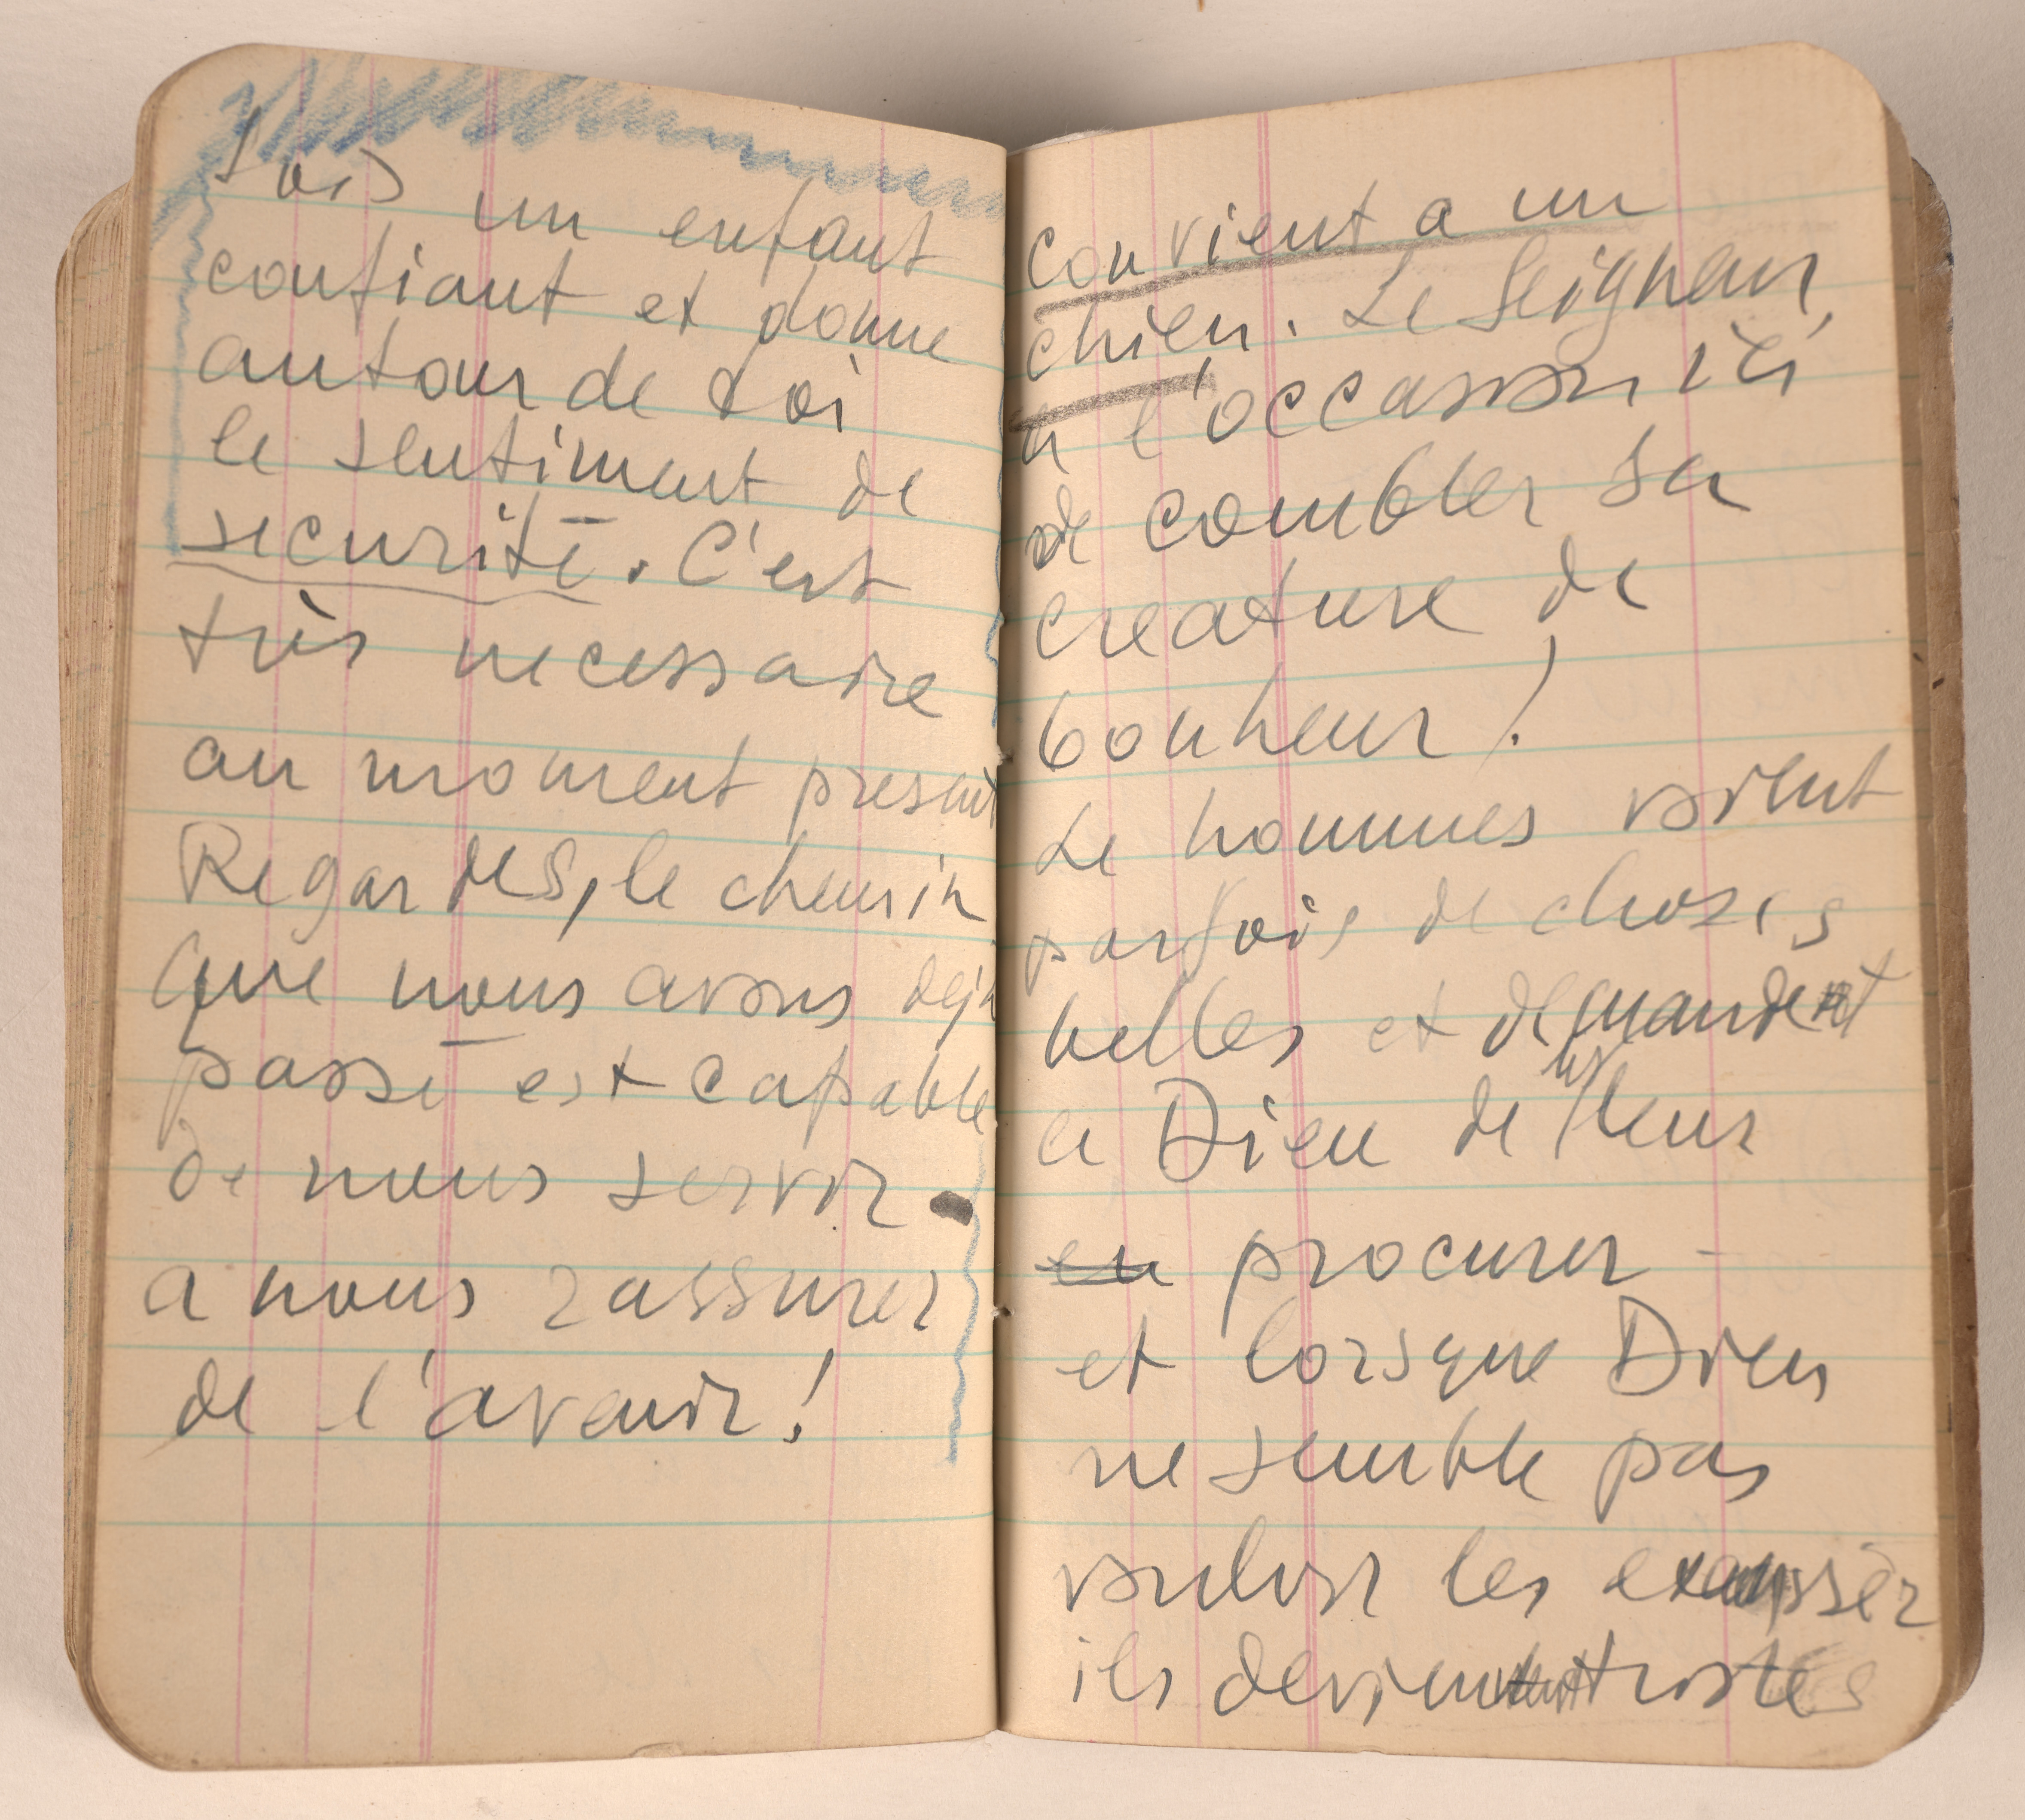 Sois un enfant
confiant et donne
autour de toi
le sentiment de
securité. C'est
très necessaire
au moment present
Regardes, le chemin
que nous avons dejà
passé est capable
de nous servir
a nous rassurer
de l'avenir!
convient a un
chien. Le Seigneur
a l'occasion ici
de combler sa
creature de
bonheur!
Le hommes voient
parfois de choses
belles et demandent
a Dieu de les leur
en procurer -
et lorsque Dieu
ne semble pas
vouloir les exausser
ils deviennent tristes